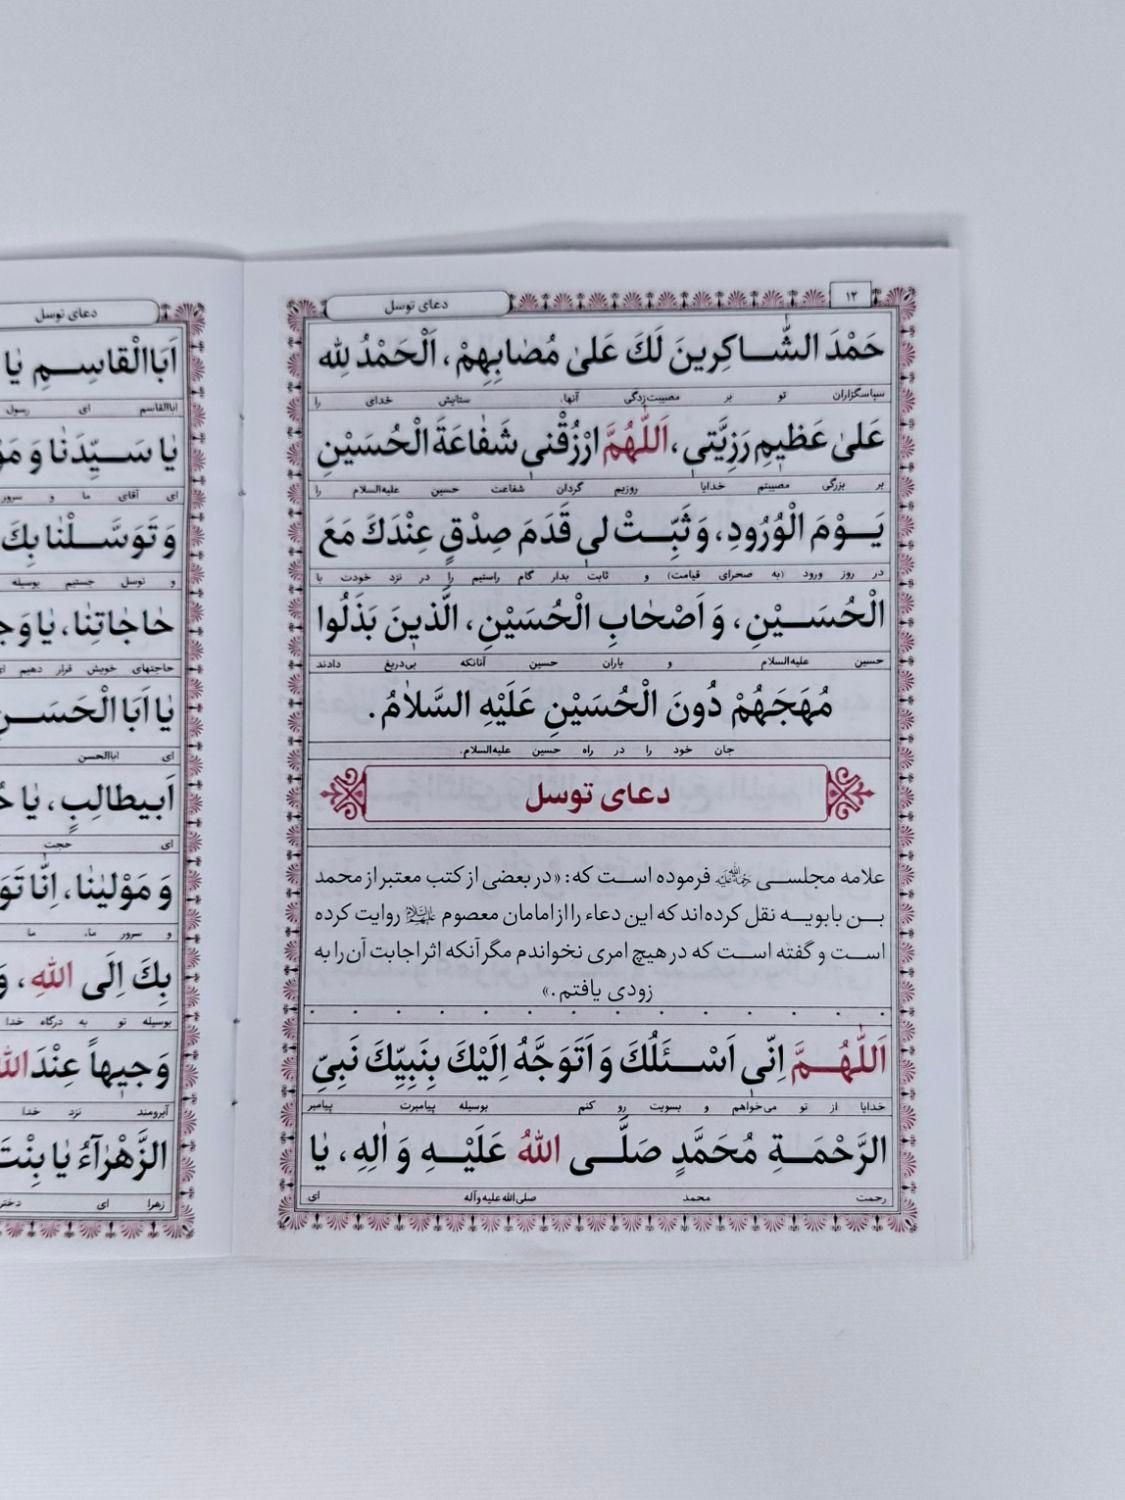 دعای توسل
۱۲
حَمْدَ الشّٰاكِرِينَ لَكَ عَلىٰ مُصٰابِهِمْ، اَلْحَمْدُ لِلّٰهِ
سپاسگزاران تو بر مصیبت‌زدگی آنها، ستایش خدای را
عَلىٰ عَظيمِ رَزِيَّتي، اَللّٰهُمَّ ارْزُقْني شَفٰاعَةَ الْحُسَيْنِ
بر بزرگی مصیبتم خدایا روزیم گردان شفاعت حسین علیه‌السلام را
يَوْمَ الْوُرُودِ، وَ ثَبِّتْ لي قَدَمَ صِدْقٍ عِنْدَكَ مَعَ
در روز ورود (به صحرای قیامت) و ثابت بدار گام راستیم را در نزد خودت با
الْحُسَيْنِ، وَ اَصْحٰابِ الْحُسَيْنِ، الَّذينَ بَذَلُوا
حسین علیه‌السلام و یاران حسین آنانکه بی‌دریغ دادند
مُهَجَهُمْ دُونَ الْحُسَيْنِ عَلَيْهِ السَّلاٰمُ.
جان خود را در راه حسین علیه‌السلام.
دعای توسل
علامه مجلسی رحمة‌الله‌علیه فرموده است که: «در بعضی از کتب معتبر از محمد
بن بابویه نقل کرده‌اند که این دعاء را از امامان معصوم علیهم‌السلام روایت کرده
است و گفته است که در هیچ امری نخواندم مگر آنکه اثر اجابت آن را به
زودی یافتم.»
اَللّٰهُمَّ اِنّي اَسْئَلُكَ وَ اَتَوَجَّهُ اِلَيْكَ بِنَبِيِّكَ نَبِيِّ
خدایا از تو می‌خواهم و بسویت رو کنم بوسیله پیامبرت پیامبر
الرَّحْمَةِ مُحَمَّدٍ صَلَّى اللّٰهُ عَلَيْهِ وَ اٰلِهِ، يٰا
رحمت محمد صلی‌الله علیه وآله ای
دعای توسل
اَبَاالْقٰاسِمِ يٰا
اباالقاسم ای رسول
يٰا سَيِّدَنٰا وَ
ای آقای ما و سرور
وَ تَوَسَّلْنٰا بِكَ
و توسل جستیم بوسیله
حٰاجٰاتِنٰا، يٰا
حاجتهای خویش قرار دهیم
يٰا اَبَا الْحَسَنِ
ای اباالحسن
اَبيطالِبٍ، يٰا
ای حجت
وَ مَوْلينٰا، اِنّٰا
و سرور ما، ما
بِكَ اِلَى اللّٰهِ، وَ
بوسیله تو به درگاه خدا
وَجيهاً عِنْدَ اللّٰهِ
آبرومند نزد خدا
الزَّهْرٰآءُ يٰا بِنْتَ
زهرا ای دختر